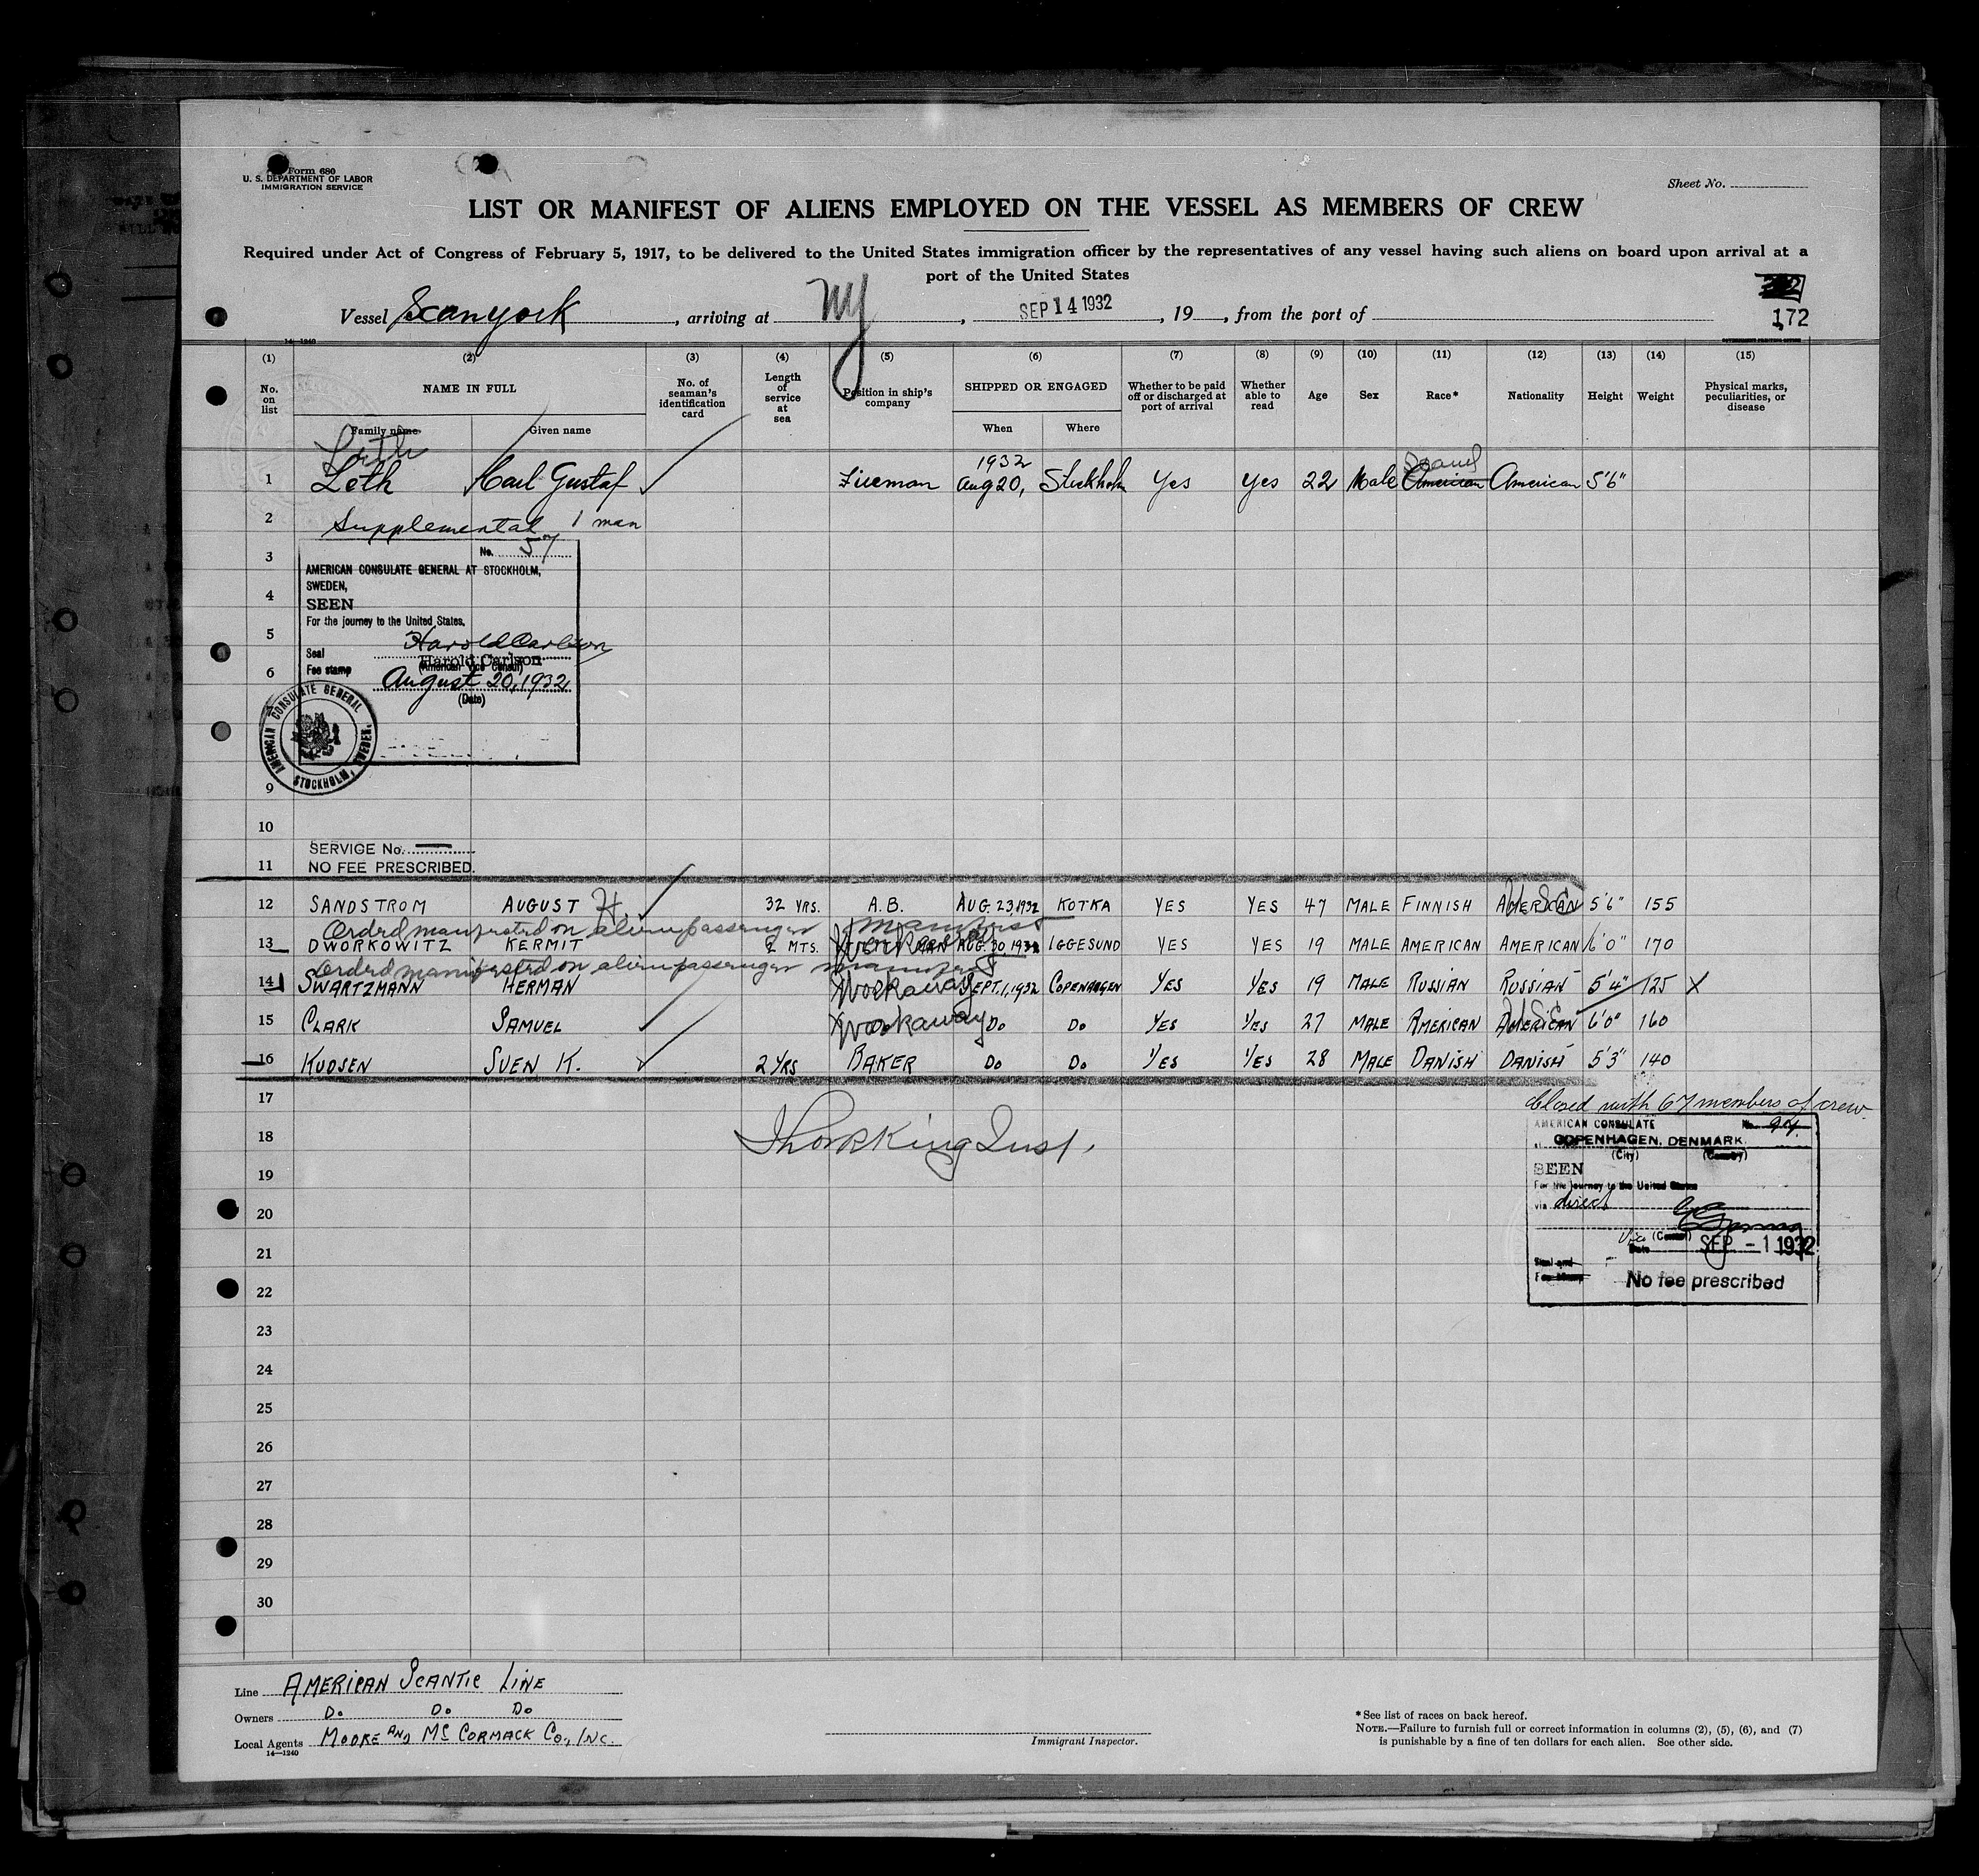 Form 680
U. S. DEPARTMENT OF LABOR
IMMIGRATION SERVICE
Sheet No.
LIST OR MANIFEST OF ALIENS EMPLOYED ON THE VESSEL AS MEMBERS OF CREW
Required under Act of Congress of February 5, 1917, to be delivered to the United States immigration officer by the representatives of any vessel having such aliens on board upon arrival at a
port of the United States
Vessel Scanyork, arriving at NY, SEP 14 1932, 19, from the port of
172
14—1240
(1) (2) (3) (4) (5) (6) (7) (8) (9) (10) (11) (12) (13) (14) (15)
No. on list NAME IN FULL No. of seaman's identification card Length of service at sea Position in ship's company SHIPPED OR ENGAGED Whether to be paid off or discharged at port of arrival Whether able to read Age Sex Race* Nationality Height Weight Physical marks, peculiarities, or disease
Family name Given name When Where
Leth 1932 Scand
1 Leth Karl Gustaf Fireman Aug 20, Stockholm Yes Yes 22 Male American American 5'6"
2 Supplemental 1 man
3 No. 57
AMERICAN CONSULATE GENERAL AT STOCKHOLM,
SWEDEN,
4 SEEN
For the journey to the United States,
5 Harold Carlson
Seal Harold Carlson
6 Fee stamp (American Vice Consul)
August 20, 1932
(Date)
AMERICAN CONSULATE GENERAL STOCKHOLM, SWEDEN.
9
10
SERVICE No. —
11 NO FEE PRESCRIBED.
12 SANDSTROM AUGUST H. 32 YRS. A.B. AUG. 23, 1932 KOTKA YES YES 47 MALE FINNISH AMERICAN USC 5'6" 155
Orderd manifested on alien passenger manifest
13 DWORKOWITZ KERMIT 2 MTS. Workaway AUG. 30, 1932 IGGESUND YES YES 19 MALE AMERICAN AMERICAN 6'0" 170
Orderd manifested on alien passenger manifest
14 SWARTZMANN HERMAN Workaway SEPT. 1, 1932 COPENHAGEN YES YES 19 MALE RUSSIAN RUSSIAN 5'4" 125 X
15 CLARK SAMUEL Workaway DO DO YES YES 27 MALE AMERICAN AMERICAN USC 6'0" 160
16 KUDSEN SVEN K. 2 YRS BAKER DO DO YES YES 28 MALE DANISH DANISH 5'3" 140
17 Closed with 67 members of crew.
AMERICAN CONSULATE No.
18 COPENHAGEN, DENMARK.
(City) (Country)
19 SEEN
For the journey to the United States
20 via direct
21 Vice (Consul)
Date SEP -1 1932
Seal and
22 Fee Stamp No fee prescribed
23
24
25
26
27
28
29
30
Line AMERICAN SCANTIC LINE
Owners DO DO DO
Local Agents MOORE AND McCORMACK CO., INC.
14—1240
Immigrant Inspector.
*See list of races on back hereof.
NOTE.—Failure to furnish full or correct information in columns (2), (5), (6), and (7)
is punishable by a fine of ten dollars for each alien. See other side.